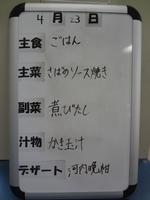 4月23日
主食 ごはん
主菜 さばのソース焼き
副菜 煮びたし
汁物 かき玉汁
デザート 河内晩柑